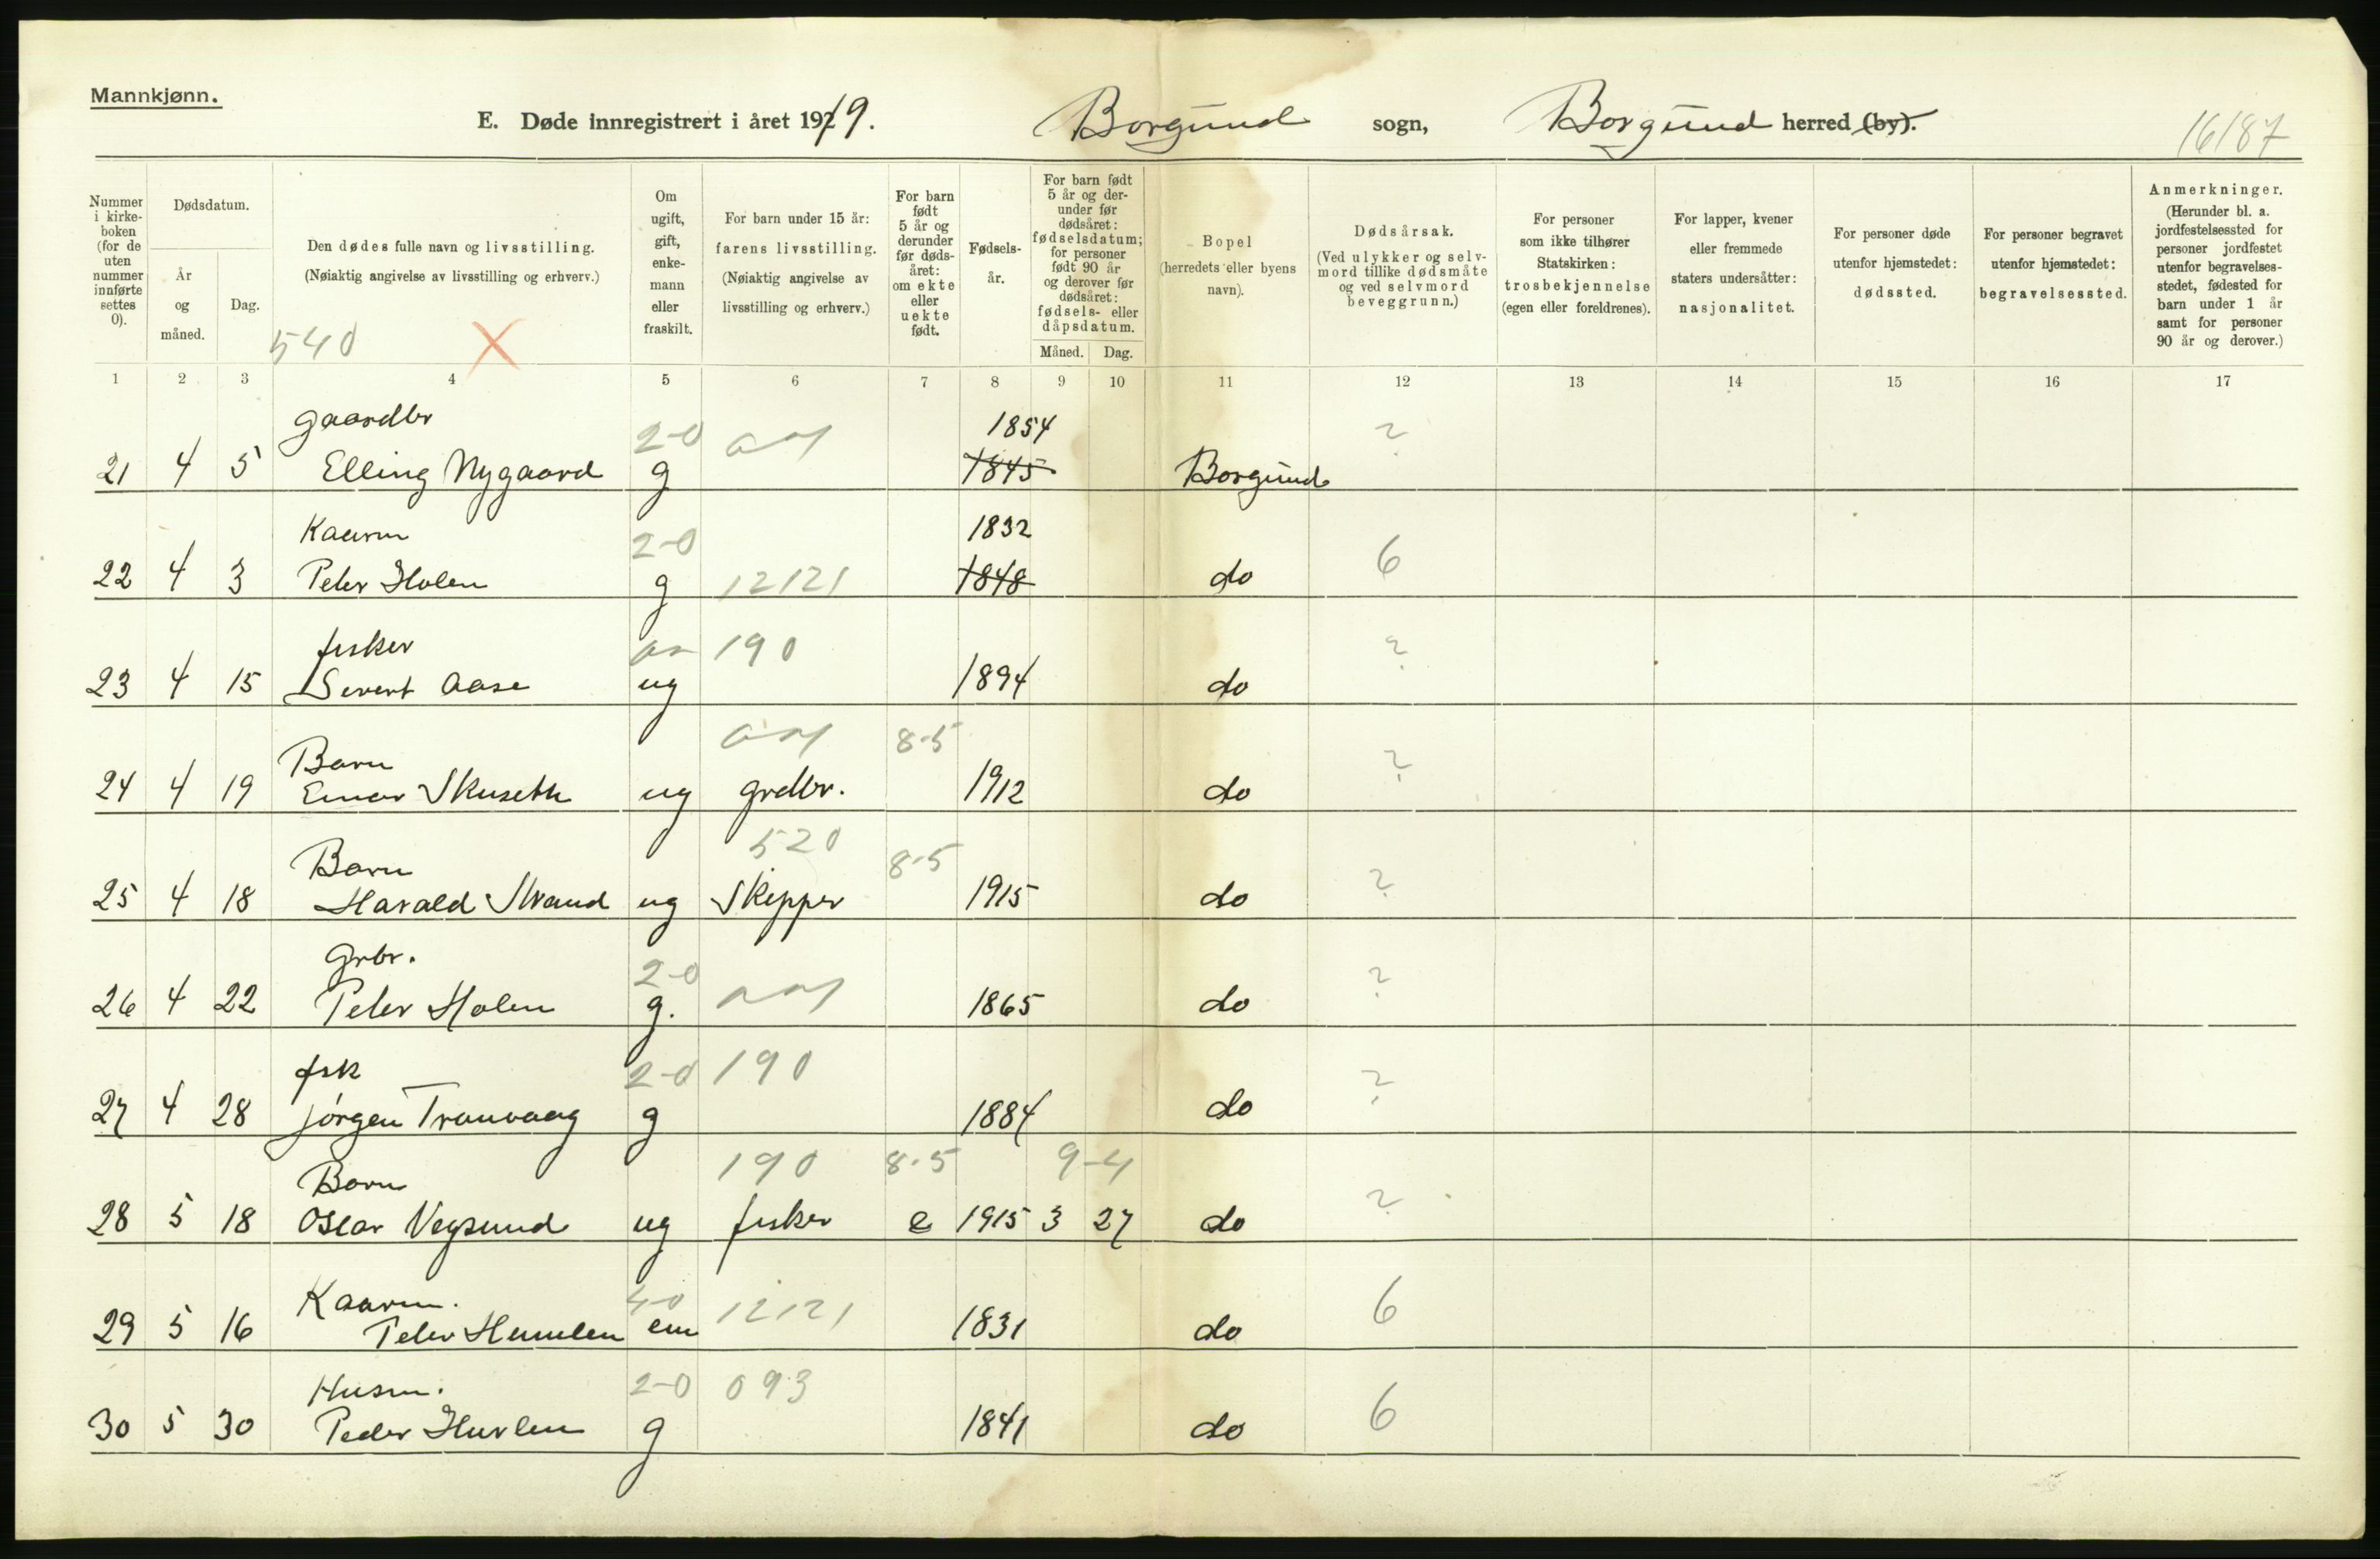 Mannkjønn.
E. Døde innregistrert i året 1919. Borgund sogn, Borgund herred (by).
16187
Nummer i kirke-boken (for de uten nummer innførte settes 0).
Dødsdatum.
År og måned.
Dag.
Den dødes fulle navn og livsstilling.
(Nøiaktig angivelse av livsstilling og erhverv.)
540 X
Om ugift, gift, enke-mann eller fraskilt.
For barn under 15 år: farens livsstilling.
(Nøiaktig angivelse av livsstilling og erhverv.)
For barn født 5 år og derunder før døds-året: om ekte eller uekte født.
Fødsels-år.
For barn født 5 år og der-under før dødsåret: fødselsdatum; for personer født 90 år og derover før dødsåret: fødsels- eller dåpsdatum.
Måned. Dag.
Bopel (herredets eller byens navn).
Dødsårsak.
(Ved ulykker og selv-mord tillike dødsmåte og ved selvmord beveggrunn.)
For personer som ikke tilhører Statskirken: trosbekjennelse (egen eller foreldrenes).
For lapper, kvener eller fremmede staters undersåtter: nasjonalitet.
For personer døde utenfor hjemstedet: dødssted.
For personer begravet utenfor hjemstedet: begravelsessted.
Anmerkninger.
(Herunder bl. a. jordfestelsessted for personer jordfestet utenfor begravelses-stedet, fødested for barn under 1 år samt for personer 90 år og derover.)
1 2 3 4 5 6 7 8 9 10 11 12 13 14 15 16 17
Gaardbr 2-0 1854 ?
21 4 5 Elling Nygaard g 1845 Borgund
Kaarm 2-0 1832 6
22 4 3 Peter Holen g 12121 1848 do
fisker 190 ?
23 4 15 Sivert Aase ug 1894 do
Barn 8-5 ?
24 4 19 Einar Skuseth ug grdbr. 1912 do
Barn 520 8-5 ?
25 4 18 Harald Strand ug Skipper 1915 do
Grbr. 2-0 ?
26 4 22 Peter Holen g. 1865 do
fsk 2-0 190 ?
27 4 28 Jörgen Tranvaag g 1884 do
Barn 190 8-5 9-4 ?
28 5 18 Oscar Vegsund ug fisker e 1915 3 27 do
Kaarm. 4-0 12121 6
29 5 16 Peter Humlen em 1831 do
Husm. 2-0 093 6
30 5 30 Peder Hurlen g 1841 do